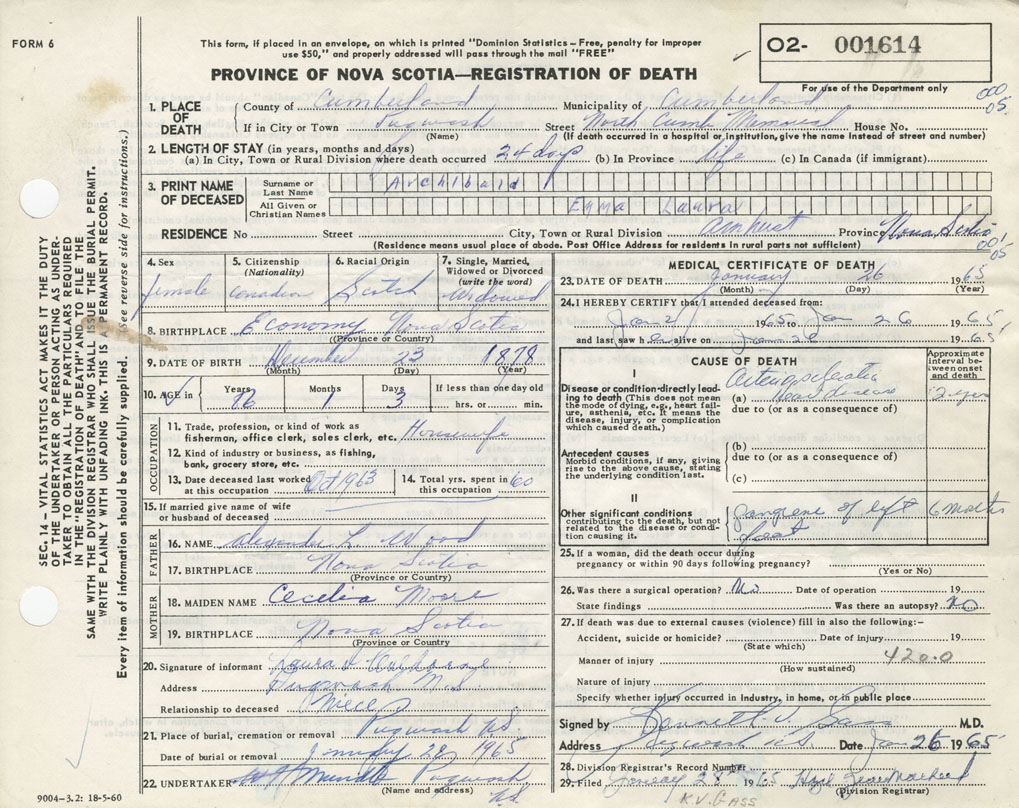 FORM 6
This form, if placed in an envelope, on which is printed "Dominion Statistics – Free, penalty for improper
use $50," and properly addressed will pass through the mail "FREE"
PROVINCE OF NOVA SCOTIA—REGISTRATION OF DEATH
02- 001614
For use of the Department only
000
05
1. PLACE OF DEATH
County of Cumberland Municipality of Cumberland
If in City or Town Pugwash Street North Cumb Memorial House No.
(Name) (If death occurred in a hospital or institution, give the name instead of street and number)
2. LENGTH OF STAY (in years, months and days)
(a) In City, Town or Rural Division where death occurred 24 days (b) In Province life (c) In Canada (if immigrant)
3. PRINT NAME OF DECEASED
Surname or Last Name Archibald
All Given or Christian Names Emma Laura
RESIDENCE No Street City, Town or Rural Division Amherst Province Nova Scotia
(Residence means usual place of abode. Post Office Address for residents in rural parts not sufficient)
001
05
4. Sex female
5. Citizenship (Nationality) Canadian
6. Racial Origin Scotch
7. Single, Married, Widowed or Divorced (write the word) Widowed
8. BIRTHPLACE Economy Nova Scotia
(Province or Country)
9. DATE OF BIRTH December 23 1878
(Month) (Day) (Year)
10. AGE in Years 86 Months 1 Days 3 If less than one day old hrs. or min.
OCCUPATION
11. Trade, profession, or kind of work as fisherman, office clerk, sales clerk, etc. Housewife
12. Kind of industry or business, as fishing, bank, grocery store, etc.
13. Date deceased last worked at this occupation Oct 1963
14. Total yrs. spent in this occupation 60
15. If married give name of wife or husband of deceased
FATHER
16. NAME Alexander L. Wood
17. BIRTHPLACE Nova Scotia
(Province or Country)
MOTHER
18. MAIDEN NAME Cecelia Moore
19. BIRTHPLACE Nova Scotia
(Province or Country
20. Signature of informant Laura
Address Pugwash N.S.
Relationship to deceased Niece
21. Place of burial, cremation or removal Pugwash N.S.
Date of burial or removal January 28 1965
22. UNDERTAKER Pugwash
(Name and address) N.S.
9004-3.2: 18-5-60
MEDICAL CERTIFICATE OF DEATH
23. DATE OF DEATH January 26 1965
(Month) (Day) (Year)
24. I HEREBY CERTIFY that I attended deceased from:
Jan 2 1965 to Jan 26 1965
and last saw her alive on Jan 26 1965
CAUSE OF DEATH
Approximate interval between onset and death
I
Disease or condition directly leading to death (This does not mean the mode of dying, e.g., heart failure, asthenia, etc. It means the disease, injury, or complication which caused death.)
(a) Arteriosclerotic Heart disease 2 yrs
due to (or as a consequence of)
Antecedent causes
Morbid conditions, if any, giving rise to the above cause, stating the underlying condition last.
(b)
due to (or as a consequence of)
(c)
II
Other significant conditions contributing to the death, but not related to the disease or condition causing it.
gangrene of left foot 6 months
25. If a woman, did the death occur during
pregnancy or within 90 days following pregnancy?
(Yes or No)
26. Was there a surgical operation? No Date of operation 19
State findings Was there an autopsy? No
27. If death was due to external causes (violence) fill in also the following:–
Accident, suicide or homicide? Date of injury 19
(State which)
Manner of injury 420.0
(How sustained)
Nature of injury
Specify whether injury occurred in industry, in home, or in public place
Signed by Kenneth V. Gass M.D.
Address Pugwash N.S. Date Jan 26 1965
28. Division Registrar's Record Number
29. Filed 28th 1965 Hazel
(Division Registrar)
K.V. GASS
SEC. 14 – VITAL STATISTICS ACT MAKES IT THE DUTY
OF THE UNDERTAKER OR PERSON ACTING AS UNDER-
TAKER TO OBTAIN ALL THE PARTICULARS REQUIRED
IN THE "REGISTRATION OF DEATH" AND TO FILE THE
SAME WITH THE DIVISION REGISTRAR WHO SHALL ISSUE THE BURIAL PERMIT.
WRITE PLAINLY WITH UNFADING INK. THIS IS A PERMANENT RECORD.
Every item of information should be carefully supplied. (See reverse side for instructions.)